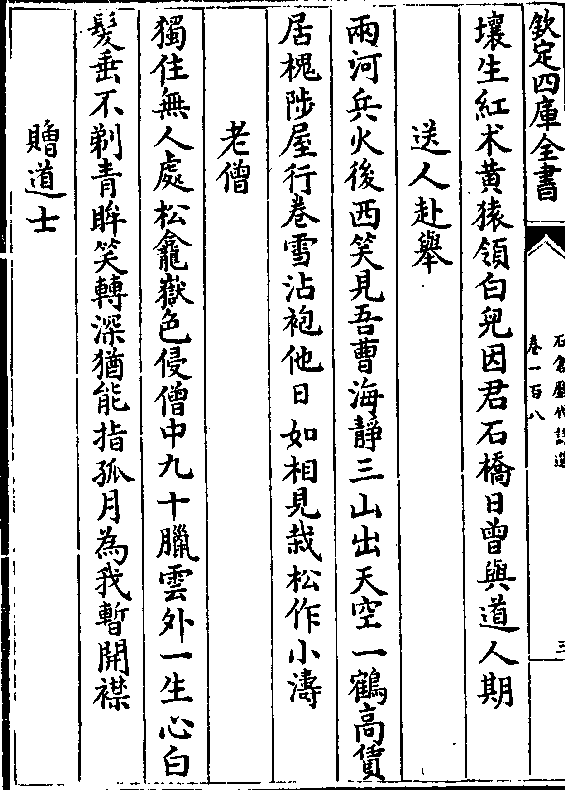 欽定四庫全書
石倉歷代詩選
卷一百八
三
壤生紅朮黄猿領白兒因君石橋日曾與道人期
送人赴舉
兩河兵火後西笑見吾曹海靜三山出天空一鶴高賃
居槐陟屋行卷雪沾袍他日如相見栽松作小濤
老僧
獨住無人處松龕嶽色侵僧中九十臘雲外一生心白
髮垂不剃青眸笑轉深猶能指孤月為我暫開襟
贈道士